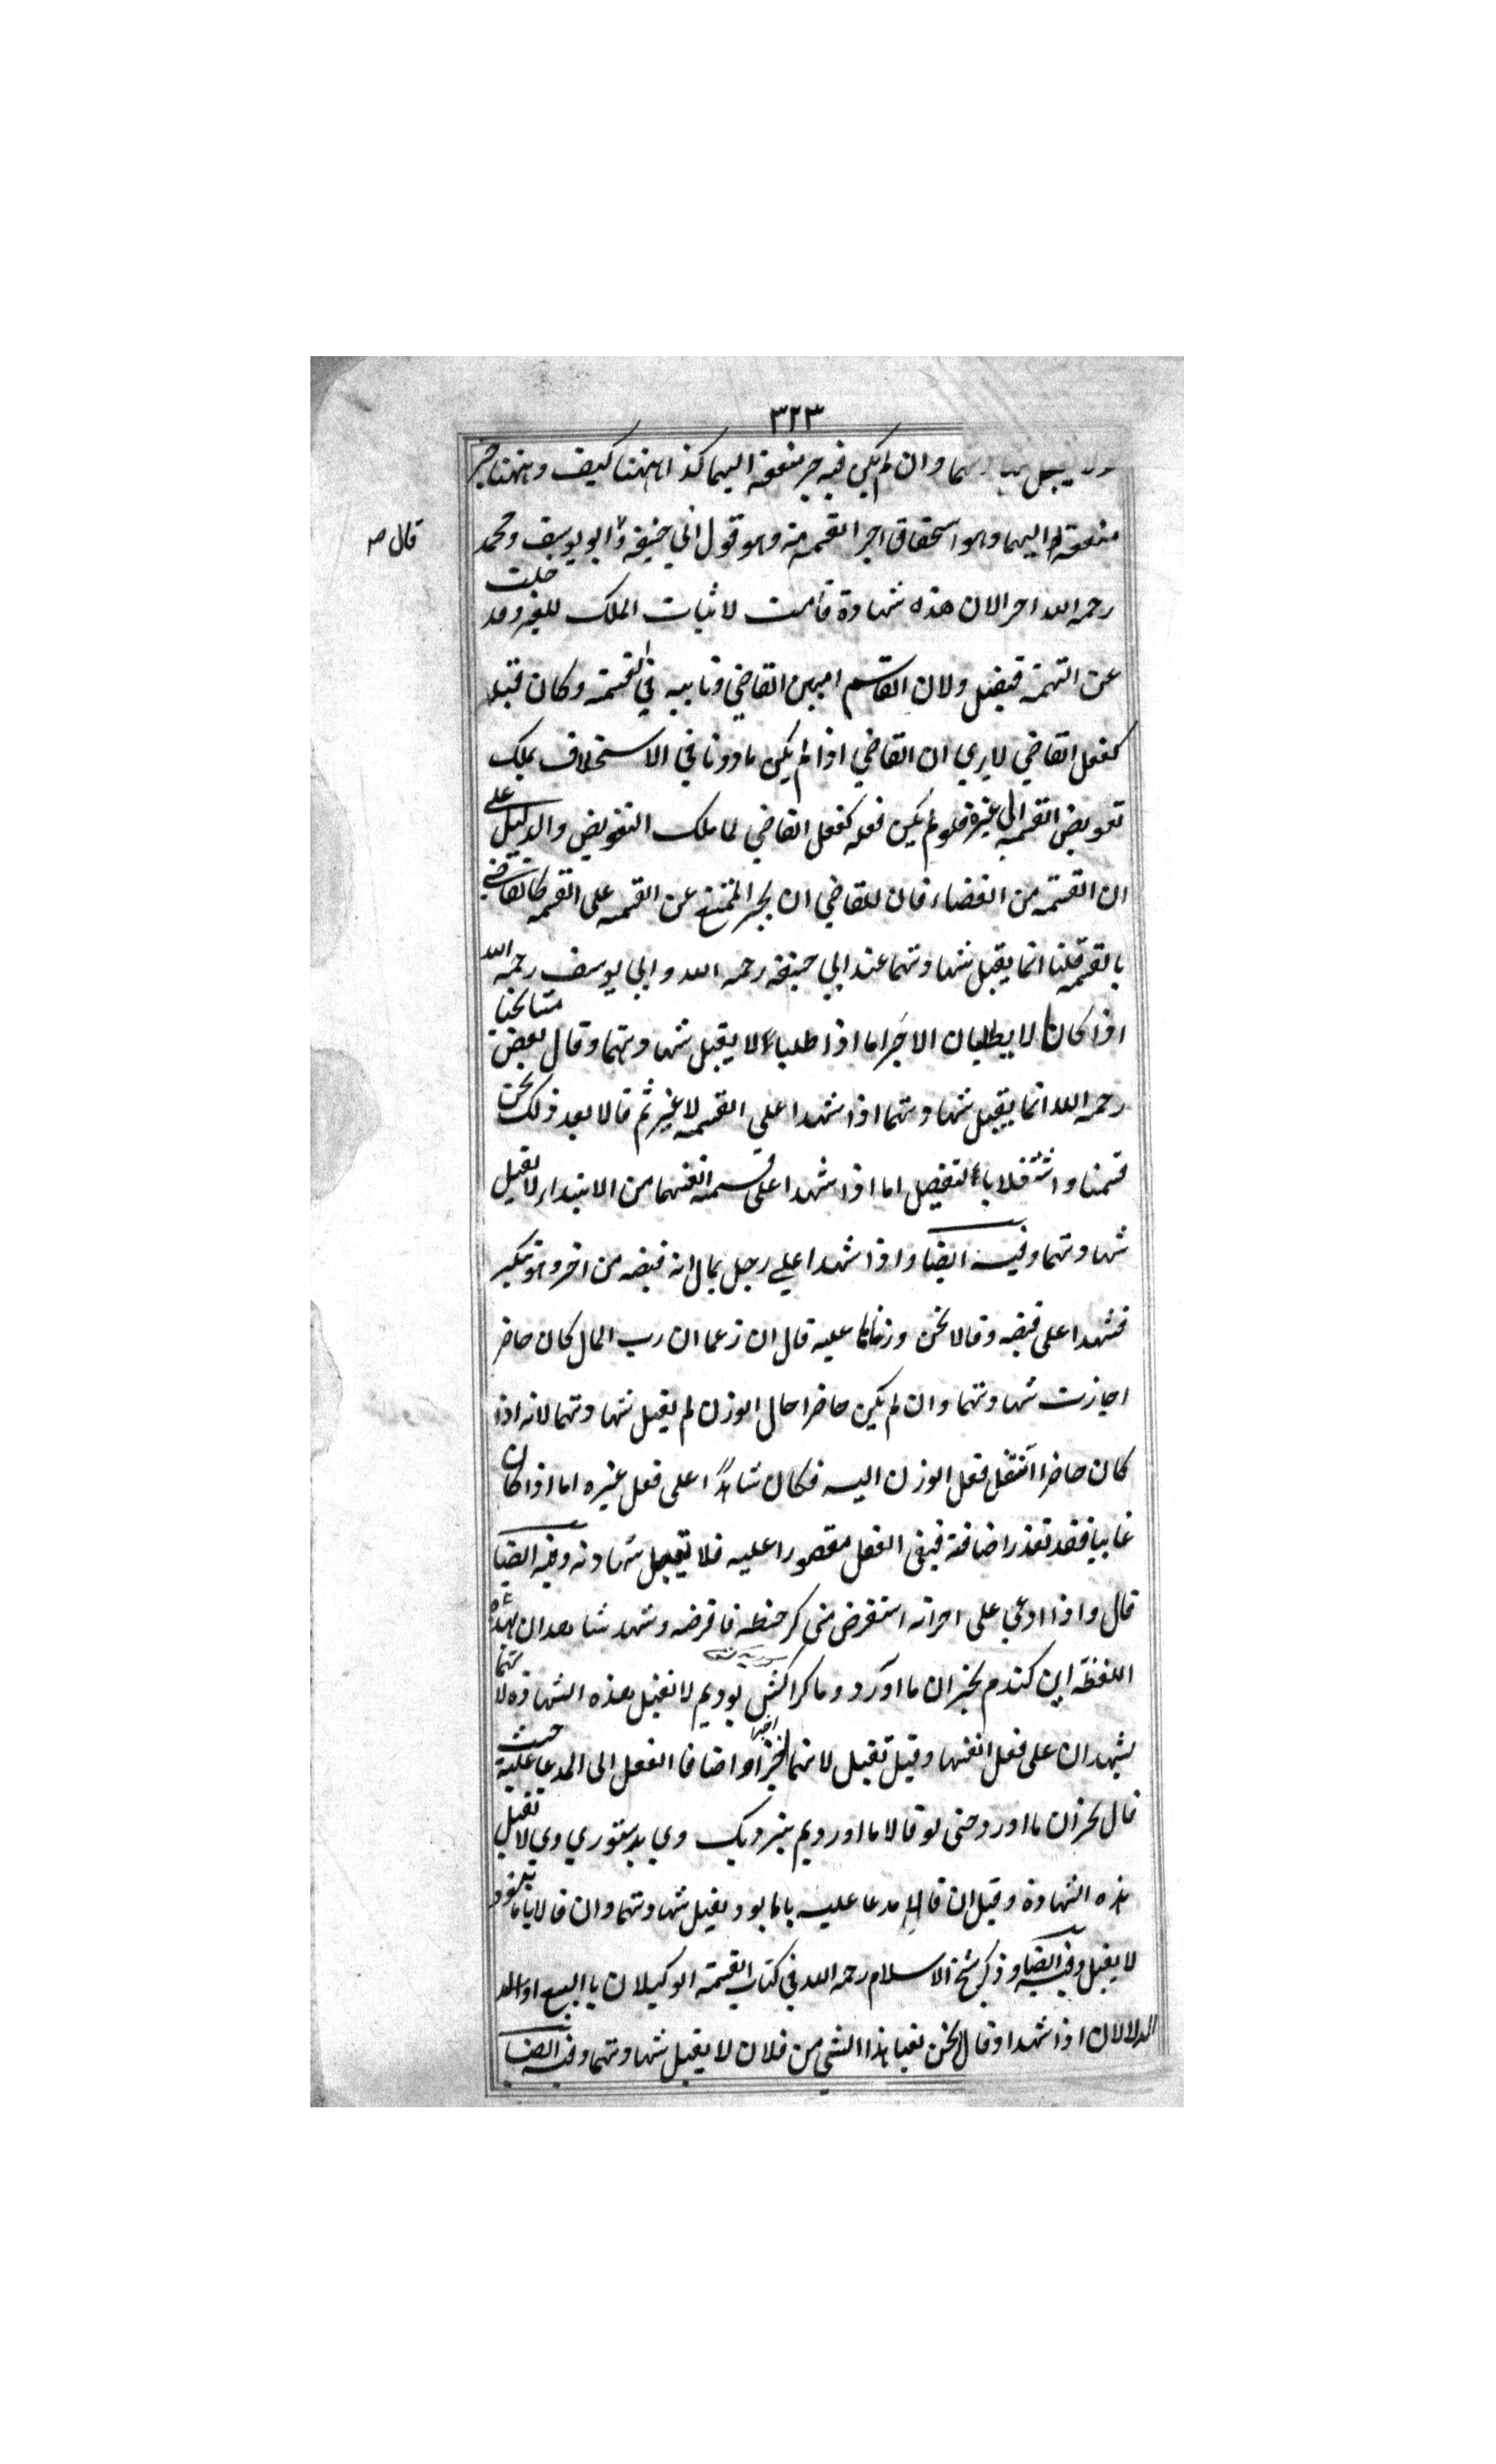 ٣٢٣
ولا يقبل شهادتهما وان لم يكن فيه جر منفعة اليهما كذا ههنا كيف وههنا جر
منفعة اليهما وهو استحقاق اجر القسمة وهو قول ابي حنيفة وابو يوسف ومحمد
قال ص
رحمه الله اخرا لان هذه شهادة قامت لاثبات الملك للغير وقد خلت
عن التهمة فيقبل ولان القاسم امين القاضي ونايبه في القسمة وكان فعله
كفعل القاضي لا يري ان القاضي اذا لم يكن ماذونا في الاستخلاف يملك
تفويض القسمة الى غيره فلو لم يكن فعله كفعل القاضي لما ملك التفويض والدليل على
ان القسمة من القضاء فان للقاضي ان يجبر الممتنع عن القسمة على القسمة كالقاضي
بالقسمة قلنا انما يقبل شهادتهما عند ابي حنيفة رحمه الله وابي يوسف رحمه الله
اذا كان لا يطلبان الاجر اما اذا طلبا لا يقبل شهادتهما وقال بعض مشايخنا
رحمه الله انما يقبل شهادتهما اذا شهدا على القسمة لا غير ثم قالا بعد ذلك نحن
قسمنا اما اذا شهدا على قسمة انفسهما من الابتداء لا تقبل
شهادتهما وفيه ايضا واذا شهدا علي رجل بمال انه قبضه من اخر وهو منكر
فشهدا على قبضه وقالا نحن وزناها عليه قال ان زعما ان رب المال كان حاضر
اجازت شهادتهما وان لم يكن حاضرا حال الوزن لم يقبل شهادتهما لانه اذا
كان حاضرا انتقل فعل الوزن اليه فكان شاهدا على فعل غيره اما اذا كان
غايبا فقد تعذر اضافته فبقى الفعل مقصورا عليه فلا تقبل شهادته وفيه ايضا
قال واذا ادعي على اخر انه استقرض مني كر حنطه فاقرضه وشهد شاهدان بهذه
اللفظه اين كندم بخر ان ما آورد وما كراكش بوديم لا تقبل هذه الشهادة لانهما
يشهدان على فعل انفسهما وقيل تقبل لانهما اخبرا واضافا الفعل الى المدعا عليه حيث
قال بخر ان ما اورد حتى لو قالا ما اورديم بنزديك وي بدستوري وي لا تقبل
هذه الشهادة وقيل ان قالا مدعا عليه باما بود يقبل شهادتهما وان قالا باما نبود
لا يقبل وفيه ايضا وذكر شيخ الاسلام رحمه الله في كتاب القسمة الوكيلان بالبيع او
الدلالان اذا شهدا وقالا نحن بعنا هذا الشي من فلان لا يقبل شهادتهما وفيه ايضا